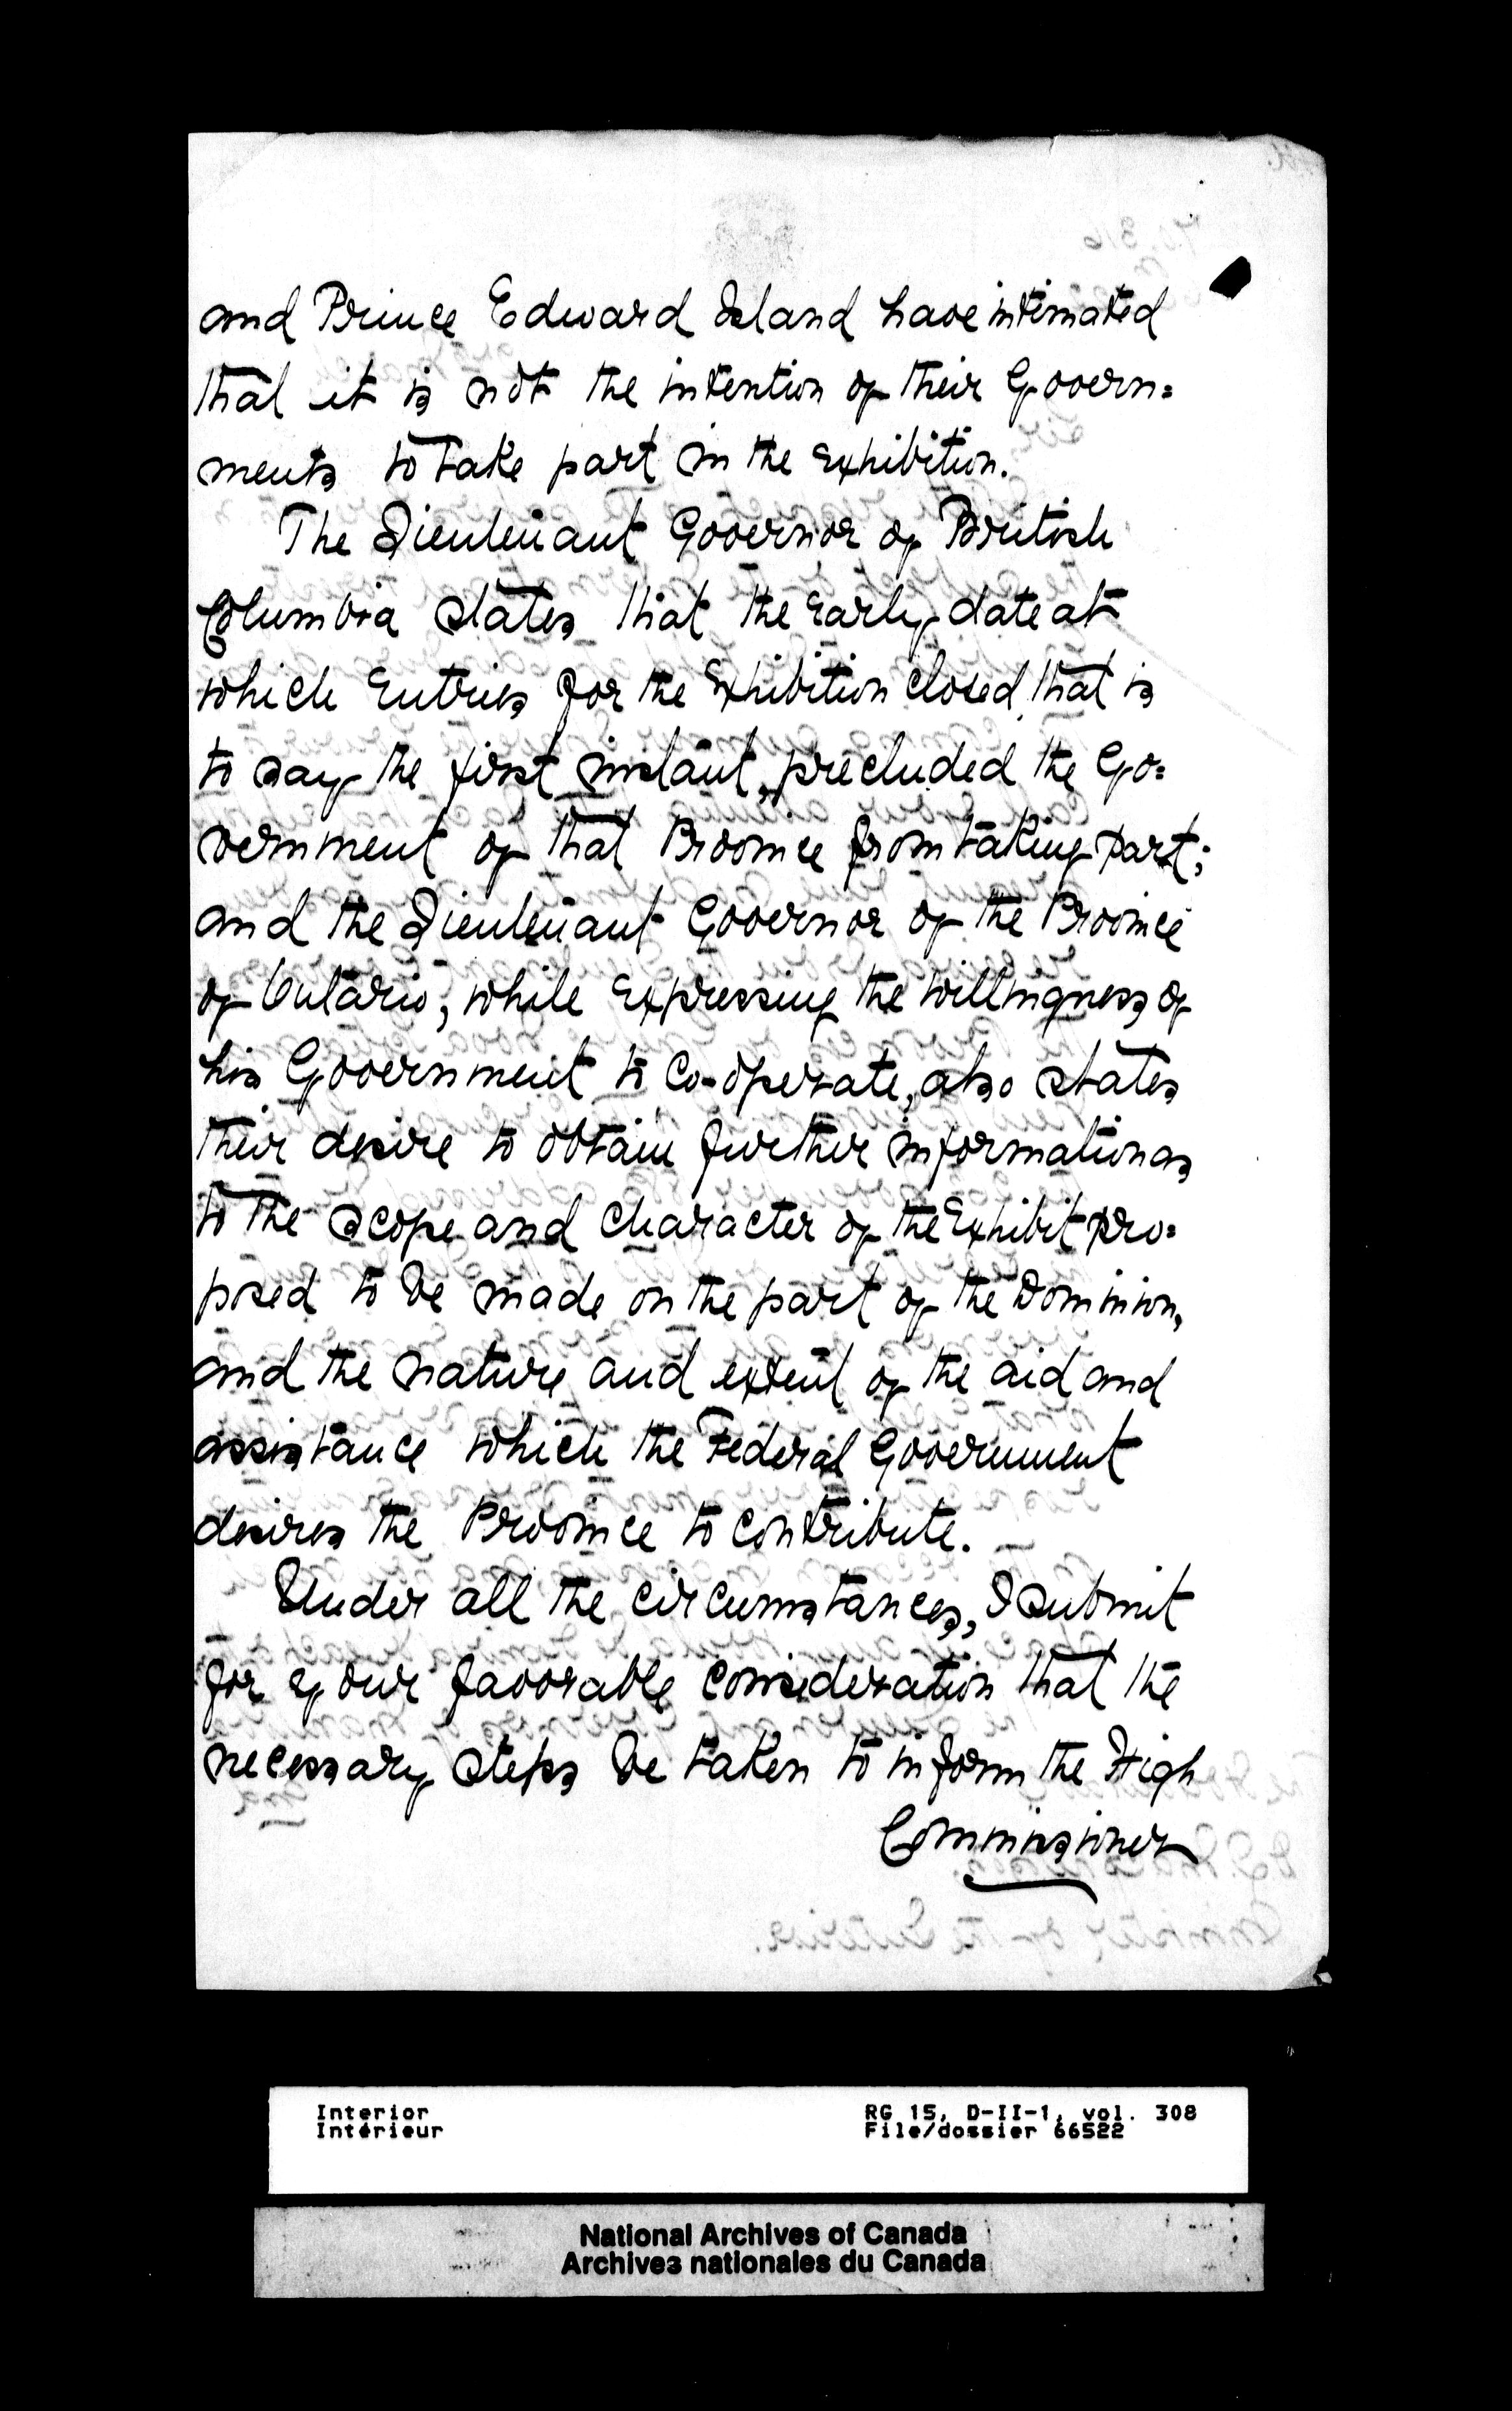 and Prince Edward Island have intimated
that it is not the intention of their Govern=
ments to take part in the Exhibition.
The Lieutenant Governor of British
Columbia states that the early date at
which Entries for the Exhibition closed, that is
to say the first instant, precluded the Go=
vernment of that Province from taking part;
and the Lieutenant Governor of the Province
of Ontario, while expressing the willingness of
his Government to co-operate, also states
their desire to obtain further information as
to the scope and character of the Exhibit pro=
posed to be made on the part of the Dominion,
and the nature and extent of the aid and
assistance which the Federal Government
desires the Province to contribute.
Under all the circumstances, I submit
for your favorable consideration that the
necessary steps be taken to inform the High
Commissioner
Interior
Intérieur
RG 15, D-II-1, vol. 308
File/dossier 66522
National Archives of Canada
Archives nationales du Canada